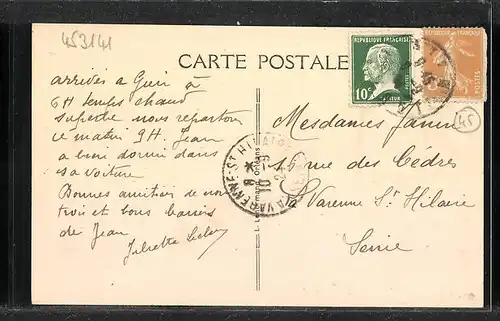 453141
CARTE POSTALE
REPUBLIQUE FRANÇAISE
10c
PASTEUR
POSTES
45
arrivés a Gien à
6H temps chaud
superbe nous repartons
ce matin 9H. Jean
a bien dormi dans
sa voiture
Bonnes amitiés de nous
trois et bons baisers
de Jean
Juliette
Mesdames
rue des Cèdres
La Varenne St Hilaire
Seine
LA VARENNE-ST HILAIRE